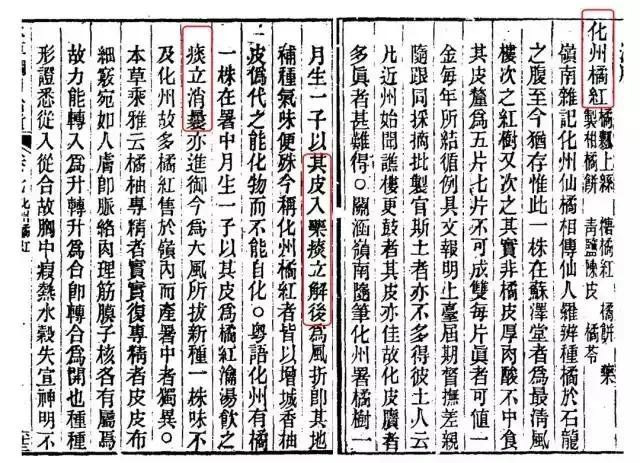 化州橘紅
橘瓤上絲 橘紅 橘餅 藥
製柑橘餅 青鹽陳皮 橘苓
嶺南雜記化州仙橘相傳仙人羅辨種橘於石龍
之腹至今猶存惟此一株在蘇澤堂者為最清風
樓次之紅樹又次之其實非橘皮厚肉酸不中食
其皮釐為五片七片不可成雙每片眞者可值一
金每年所結循例具文報明上臺屆期督撫差親
隨跟同採摘批製官斯土者亦不多得彼土人云
凡近州始聞譙樓更鼓者其皮亦佳故化皮贋者
多眞者甚難得○關涵嶺南隨筆化州署橘樹一
月生一子以其皮入藥痰立解後為風折即其地
補種氣味便殊今稱化州橘紅者皆以增城香柚
皮偽代之能化物而不能自化○粵語化州有橘
一株在署中月生一子以其皮為橘紅瀹湯飲之
痰立消曩亦進御今為大風所拔新種一株味不
及化州故多橘紅售於嶺內而產署中者獨異○
本草乘雅云橘柚專精者實實復專精者皮皮布
細竅宛如人膚即脈絡肉理筋膜子核各有屬焉
故力能轉入為升轉升為合即轉合為開也種種
形證悉從入從合故胸中瘕熱水穀失宣神明不